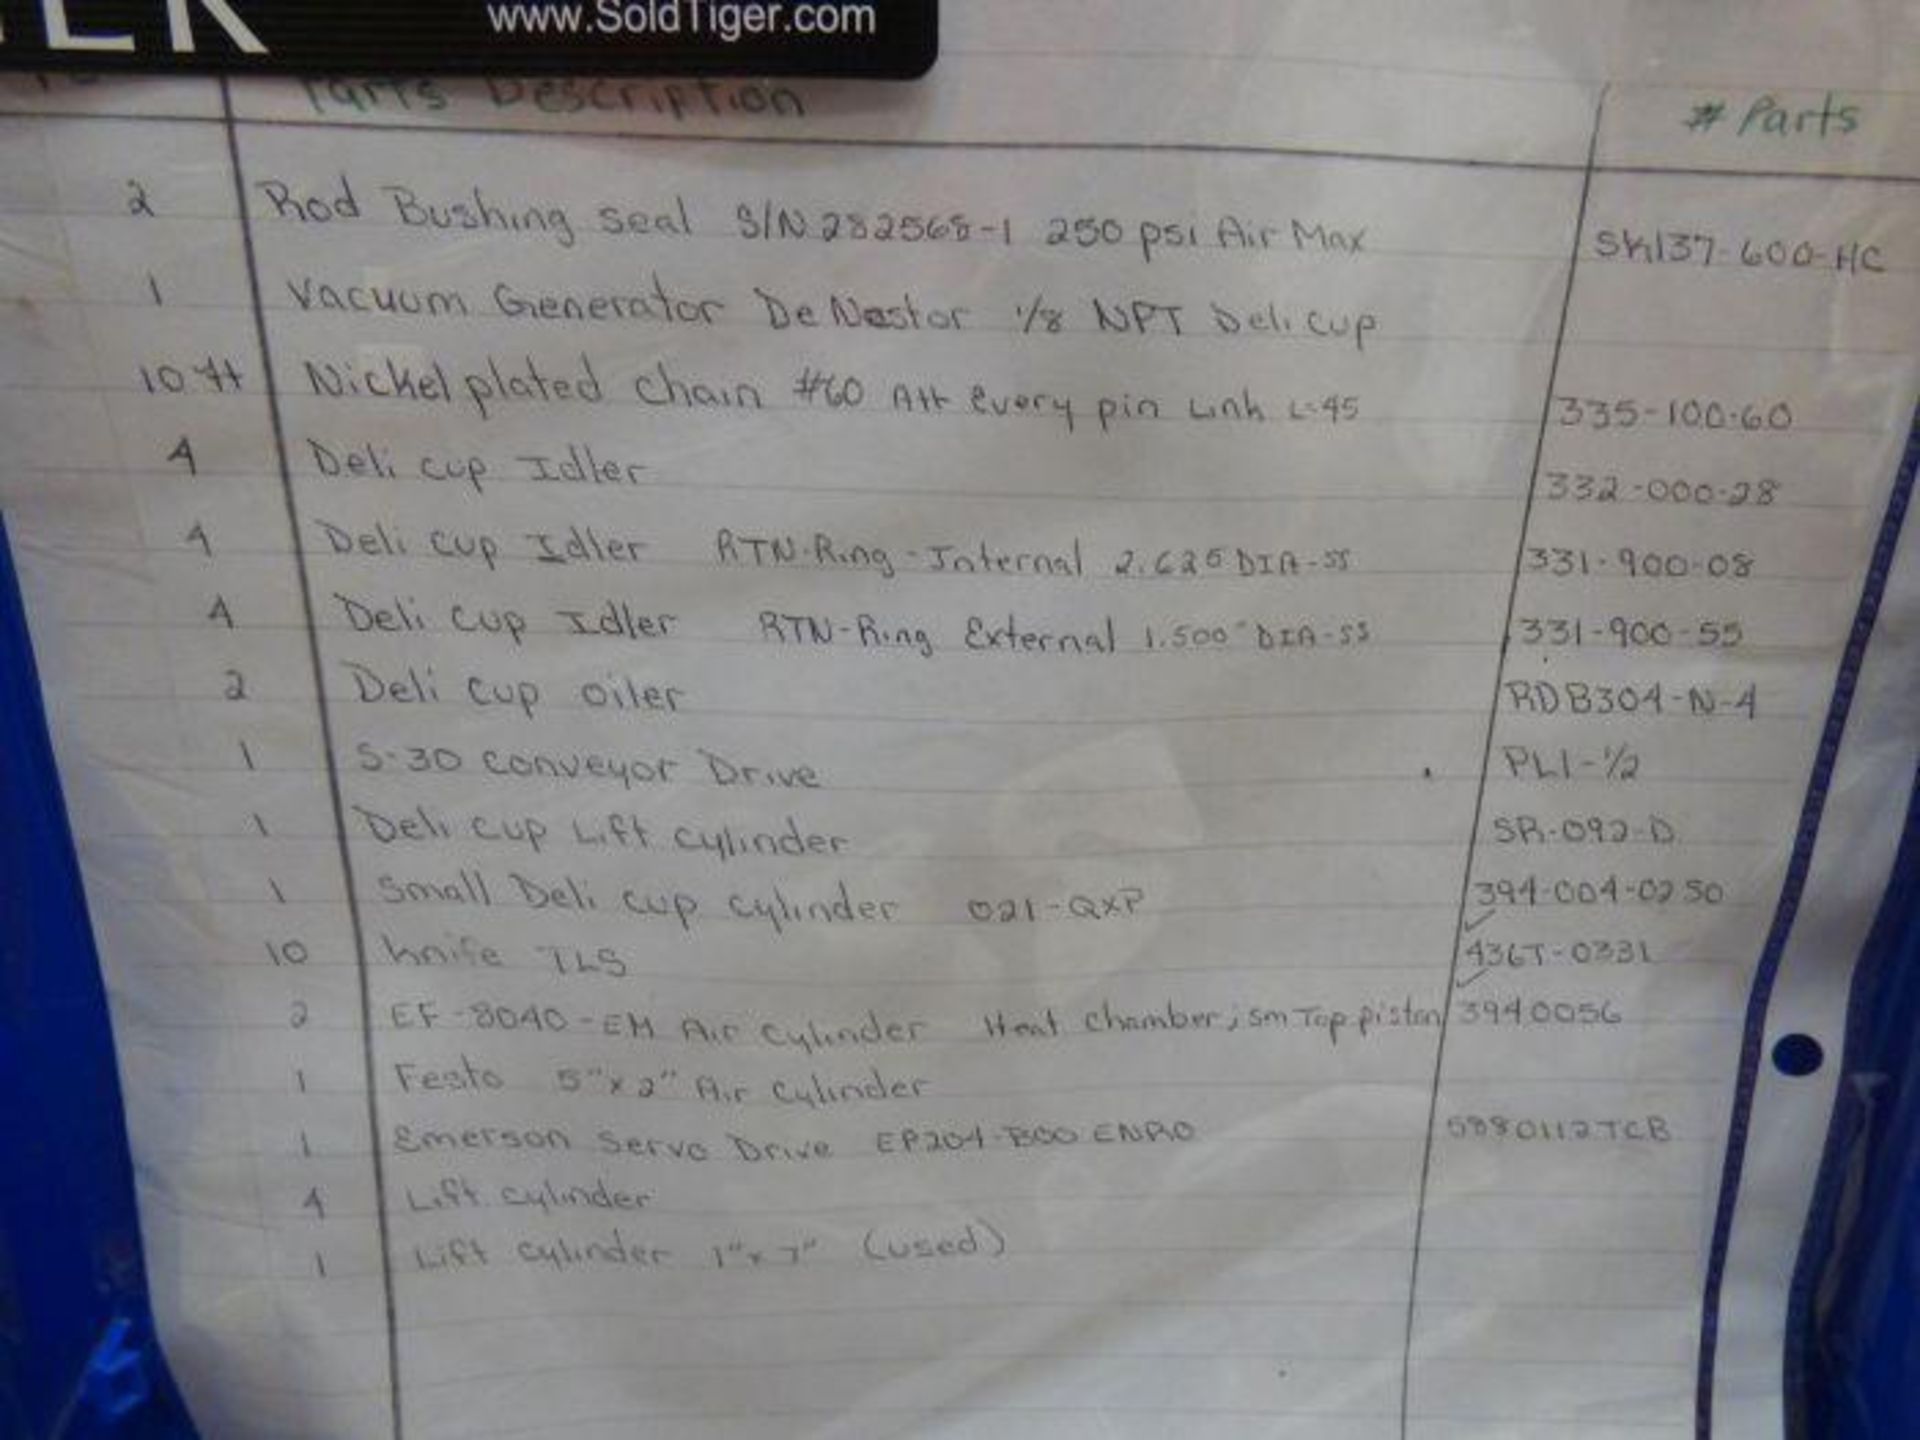 www.SoldTiger.com
Parts Description # Parts
2 Rod Bushing seal S/N 282568-1 250 psi Air Max SK137-600-HC
1 Vacuum Generator DeNestor 1/8 NPT Deli cup
10 ft Nickel plated chain #60 Att every pin Link L-45 335-100-60
4 Deli cup Idler 332-000-28
4 Deli cup Idler RTN-Ring-Internal 2.625 DIA-SS 331-900-08
4 Deli cup Idler RTN-Ring External 1.500" DIA-SS 331-900-55
2 Deli cup oiler RDB304-N-4
1 S-30 conveyor Drive PL1-1/2
1 Deli cup Lift cylinder SR-092-D
1 Small Deli cup cylinder 021-QXP 394-004-0250
10 Knife TLS 436T-0331
2 EF-8040-EM Air cylinder Heat chamber, sm Top piston 3940056
1 Festo 5"x2" Air cylinder
1 Emerson Servo Drive EP204-B00 EN00 5880112TCB
4 Lift cylinder
1 Lift cylinder 1"x7" (used)